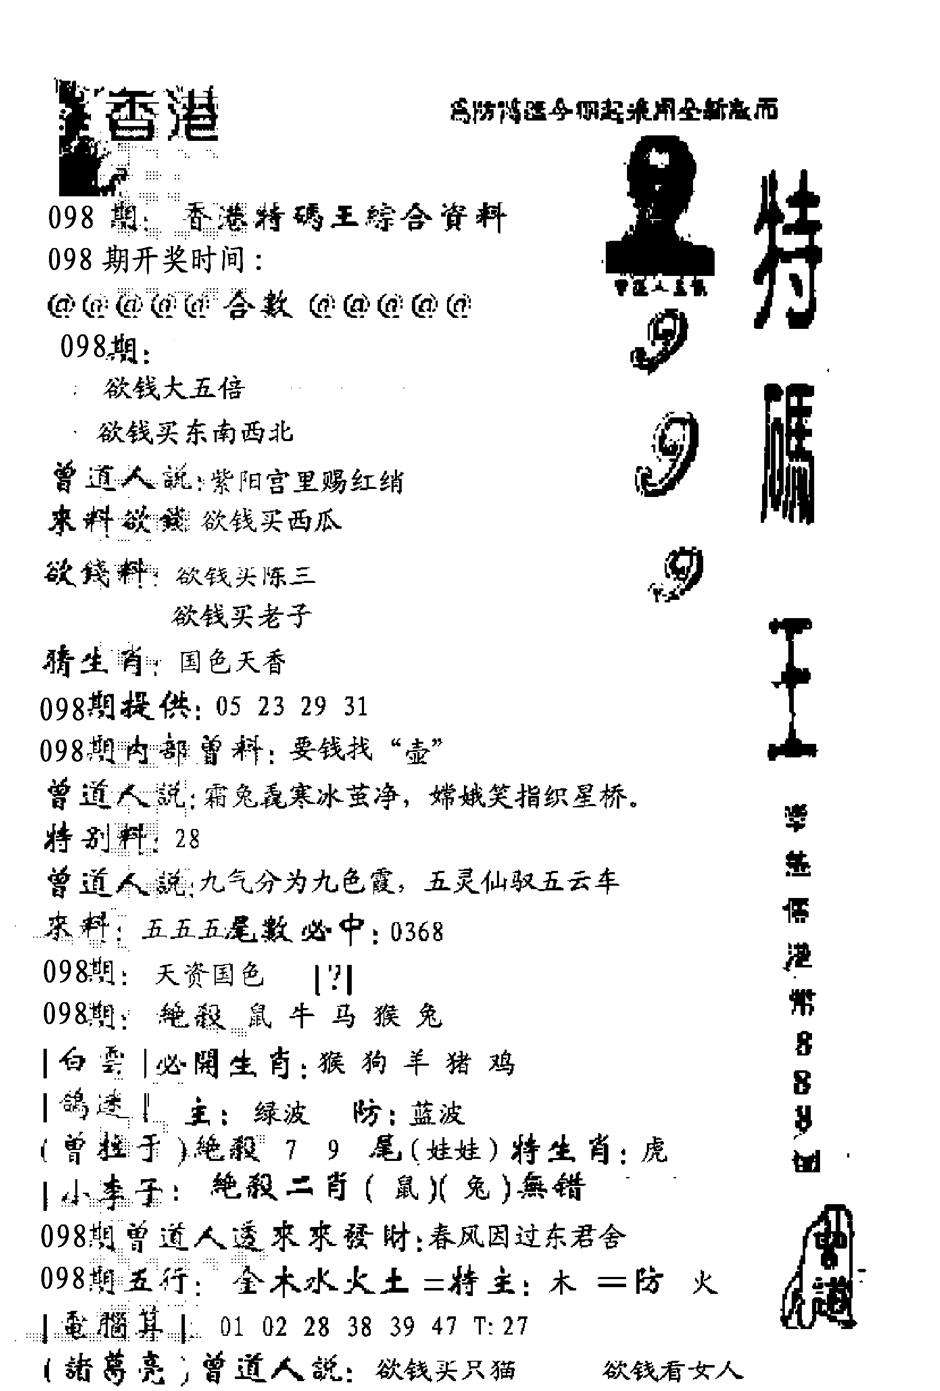 香港
為防偽區今個起采用全新版面
098 期: 香港特碼王綜合資料
098 期开奖时间:
@@@@@合數@@@@@
098期:
欲钱大五倍
欲钱买东南西北
曾道人説:紫阳宫里赐红绡
來料欲錢 欲钱买西瓜
欲錢料: 欲钱买陈三
欲钱买老子
猜生肖: 国色天香
098期提供: 05 23 29 31
098期内部曾料: 要钱找“壶”
曾道人説:霜兔毳寒冰茧净，嫦娥笑指织星桥。
特别料: 28
曾道人説:九气分为九色霞，五灵仙驭五云车
來料: 五五五尾數必中: 0368
098期: 天资国色 |?|
098期: 絶殺 鼠 牛 马 猴 兔
|白雲|必開生肖: 猴 狗 羊 猪 鸡
|鴿迷| 主: 绿波 防: 蓝波
(曾 于)絶殺 7 9 尾(娃娃)特生肖: 虎
|小李子: 絶殺二肖(鼠)(兔)無错
098期曾道人透來來發財:春风因过东君舍
098期五行: 金木水火土=特主: 木 =防 火
|電腦算|: 01 02 28 38 39 47 T:27
(諸葛亮)曾道人説: 欲钱买只猫 欲钱看女人
9
9
9
特碼王
港幣888
曾道